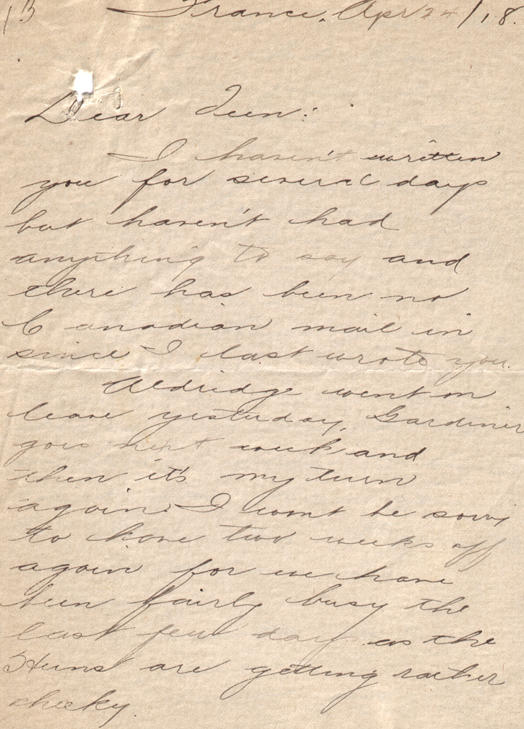 France, Apr 24/18.
Dear Teen:
I haven't written
you for several days
but haven't had
anything to say and
there has been no
Canadian mail in
since I last wrote you.
Aldridge went on
leave yesterday, Gardiner
goes next week and
then it's my turn
again. I wont be sorry
to have two weeks off
again for we have
been fairly busy the
last few days as the
Huns are getting rather
cheeky.